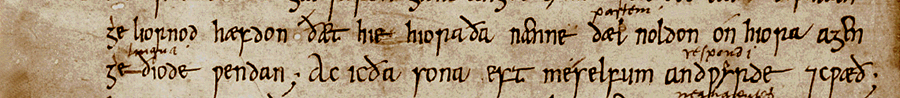 partem
ge liornod hæfdon ðæt hie hiora ða nænne dæl noldon on hiora agen
lingua respondi
ge ðiode wendan; Ac ic ða sona eft me selfum andwyrde ⁊ cwæð;